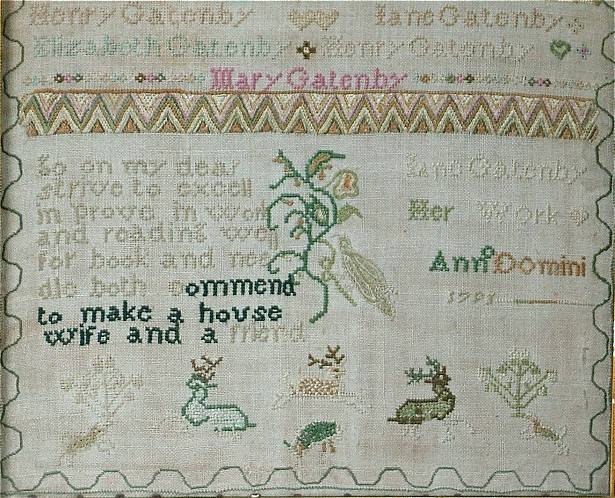 Henry Gatenby Iane Gatenby
Elizabeth Gatenby Henry Gatenby
Mary Gatenby
Go on my dear
strive to excell
in prove in work
and reading well
for book and nee
dle both commend
to make a house
wife and a friend
Iane Gatenby
Her Work
Anno Domini